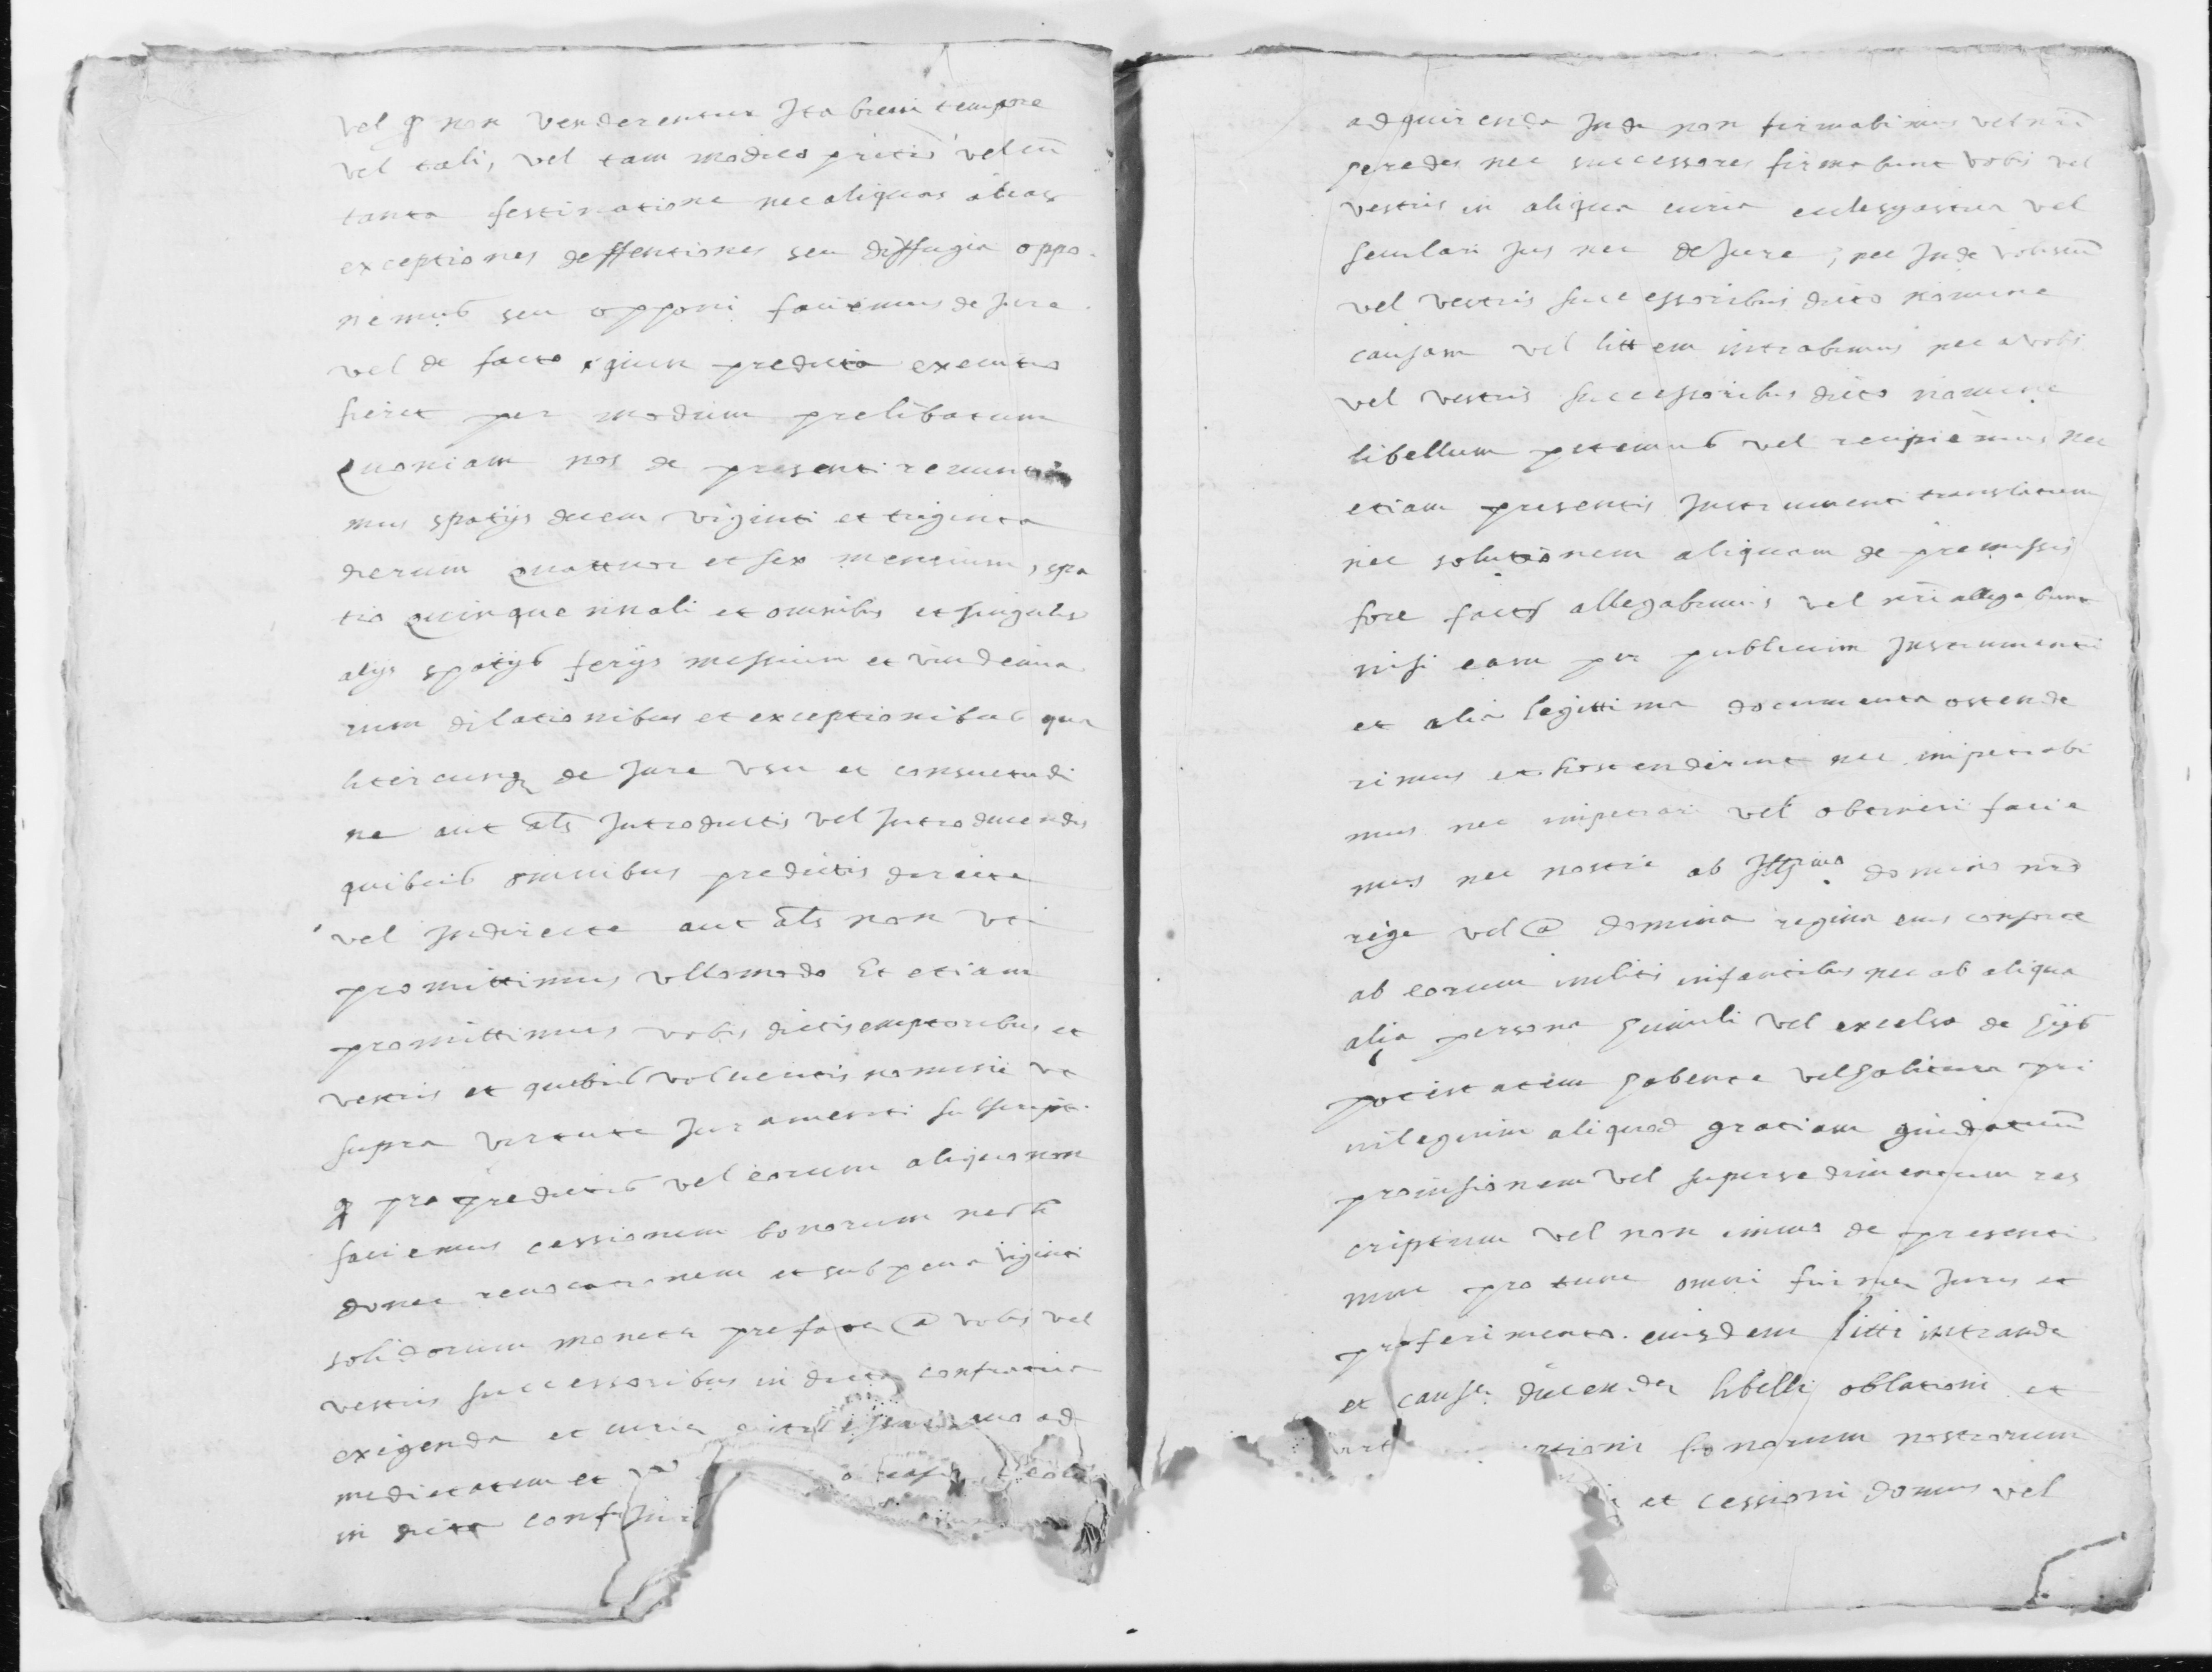 vel q non venderentur Ita brevi tempore
vel tali, vel tam modico pritio vel cū
tanta festinatione nec aliquas alias
exceptiones deffentiones seu diffugia oppo
nemus seu opponi faciemus de Jure
vel de facto quin predicta executio
fieret per modum prelibatum
Quoniam nos de presenti renuntia
mus spatijs decem viginti et triginta
dierum Quattuor et sex mensium, spa
tio Quinque nnali et omnibus et singulis
alijs spatijs ferijs messium et vindemia
rum dilationibus et exceptionibus qua
litercunq de Jure vsu et consuetudi
ne aut als Introductis vel Introducendis
quibus omnibus predictis directe
vel Indirecte aut als non vti
promittimus vllomodo Et etiam
promittimus vobis dictis emptoribus et
vestris et quibus volueritis nomine vt
supra virtute Juramenti subscripti
q pro predictis vel eorum aliquo non
faciemus cessionem bonorum nec
donec reuocationem et sub pena viginti
solidorum moneta prefata @ vobis vel
vestris successoribus in dicta confratria
exigenda et curia ad
medietatem et
in dicta conf
adquirenda Inde non firmabimus vel nri
heredes nec successores firmabunt vobis vel
vestris in aliqua curia eclesyastica vel
seculari Jus nec de Jure, nec Inde vobiscum
vel vestris successoribus dicto nomine
causam vel littem intrabimus nec a vobis
vel vestris successoribus dicto nomine
libellum petemus vel recipiemus nec
etiam presentis Instrumenti translatum
nec solutionem aliquam de premissis
fore facta allegabimus vel nri allegabunt
nisi eam per publicum Instrumenti
et alia legittima documenta ostende
rimus et hostenderint nec impetrabi
mus nec impetrari vel obtineri facie
mus nec nostri ab Illmo domino nro
rege vel @ domina regina eius consorte
ab eorum inclitis infantibus nec ab aliqua
alia persona humili vel excelsa de hijs
potestatem habente vel habitura pri
vilegium aliquod gratiam guidaticum
provisionem vel supersedimentum res
criptum vel non imus de presenti
nunc pro tunc omni firma Juris et
proferimento eiusdem litti intranda
et causa ducenda libelli oblationi et
rtioni bonorum nostrorum
et cessioni domus vel